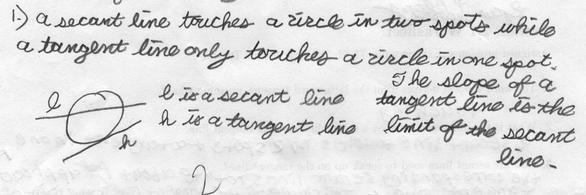 1.) a secant line touches a circle in two spots while
a tangent line only touches a circle in one spot.
l is a secant line
h is a tangent line
The slope of a
tangent line is the
limit of the secant
line.
l
h
2